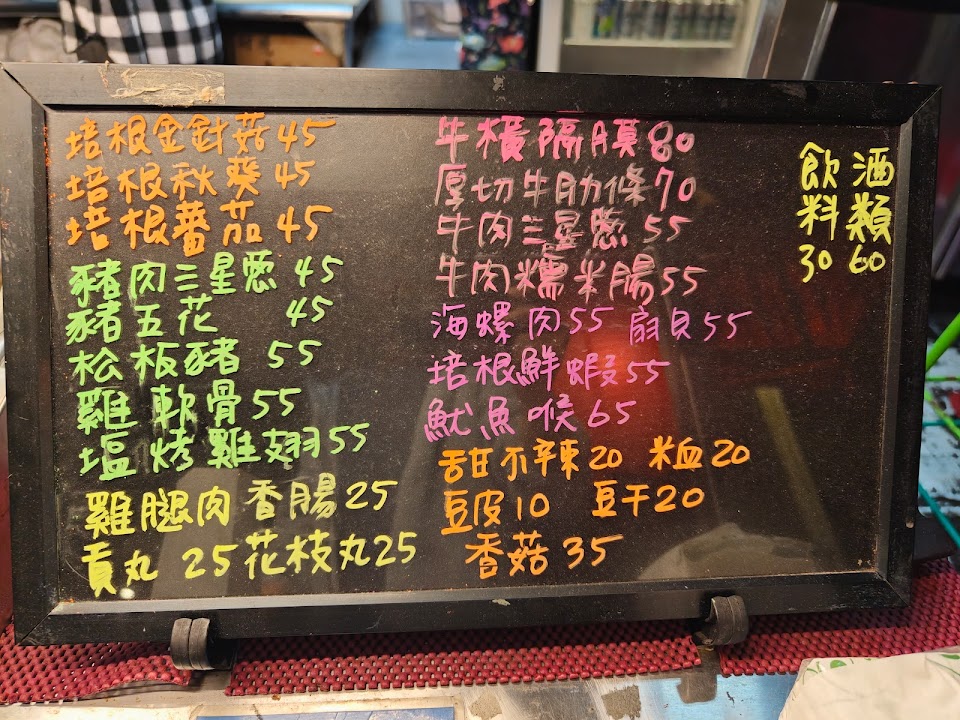 培根金針菇45
培根秋葵45
培根蕃茄45
豬肉三星蔥45
豬五花 45
松板豬 55
雞軟骨55
塩烤雞翅55
雞腿肉香腸25
貢丸 25花枝丸25
牛橫隔膜80
厚切牛肋條70
牛肉三星蔥55
牛肉糯米腸55
海螺肉55 扇貝55
培根鮮蝦55
魷魚喉65
甜不辣20 米血20
豆皮10 豆干20
香菇35
酒類60
飲料30